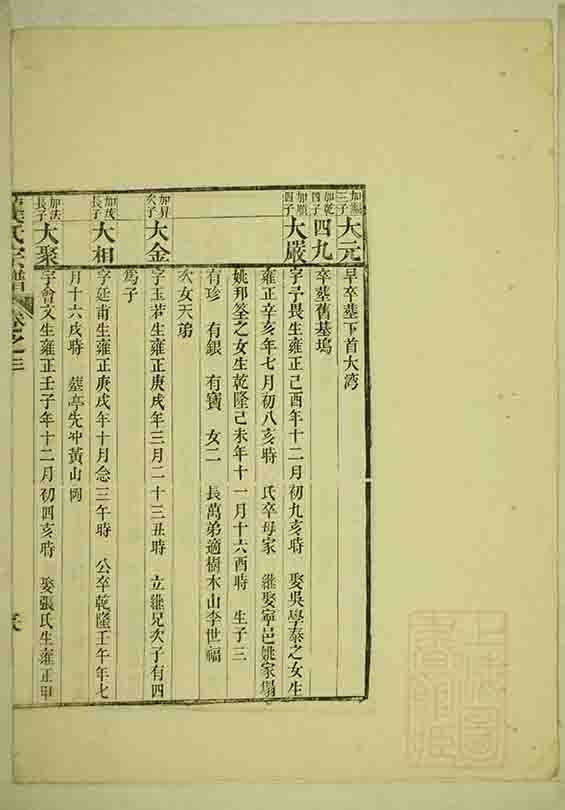 三子 大元 早卒墓下首大湾
加乾四子 四九 卒墓舊基塢
加順四子 大嚴 字予畏生雍正己酉年十二月初九亥時 娶吳學泰之女生
雍正辛亥年七月初八亥時 氏卒母家 繼娶寧邑姚家塌
姚邦筌之女生乾隆己未年十一月十六酉時 生子三
有珍 有銀 有寶 女二 長萬弟適樹木山李世福
次女天弟
加昇次子 大金 字玉若生雍正庚戌年三月二十三丑時 立繼兄次子有四
爲子
加茂長子 大相 字延甫生雍正庚戌年十月念三午時 公卒乾隆壬午年七
月十六戌時 葬亭先冲黃山岡
加法長子 大聚 字會文生雍正壬子年十二月初四亥時 娶張氏生雍正甲
氏宗譜 卷之三